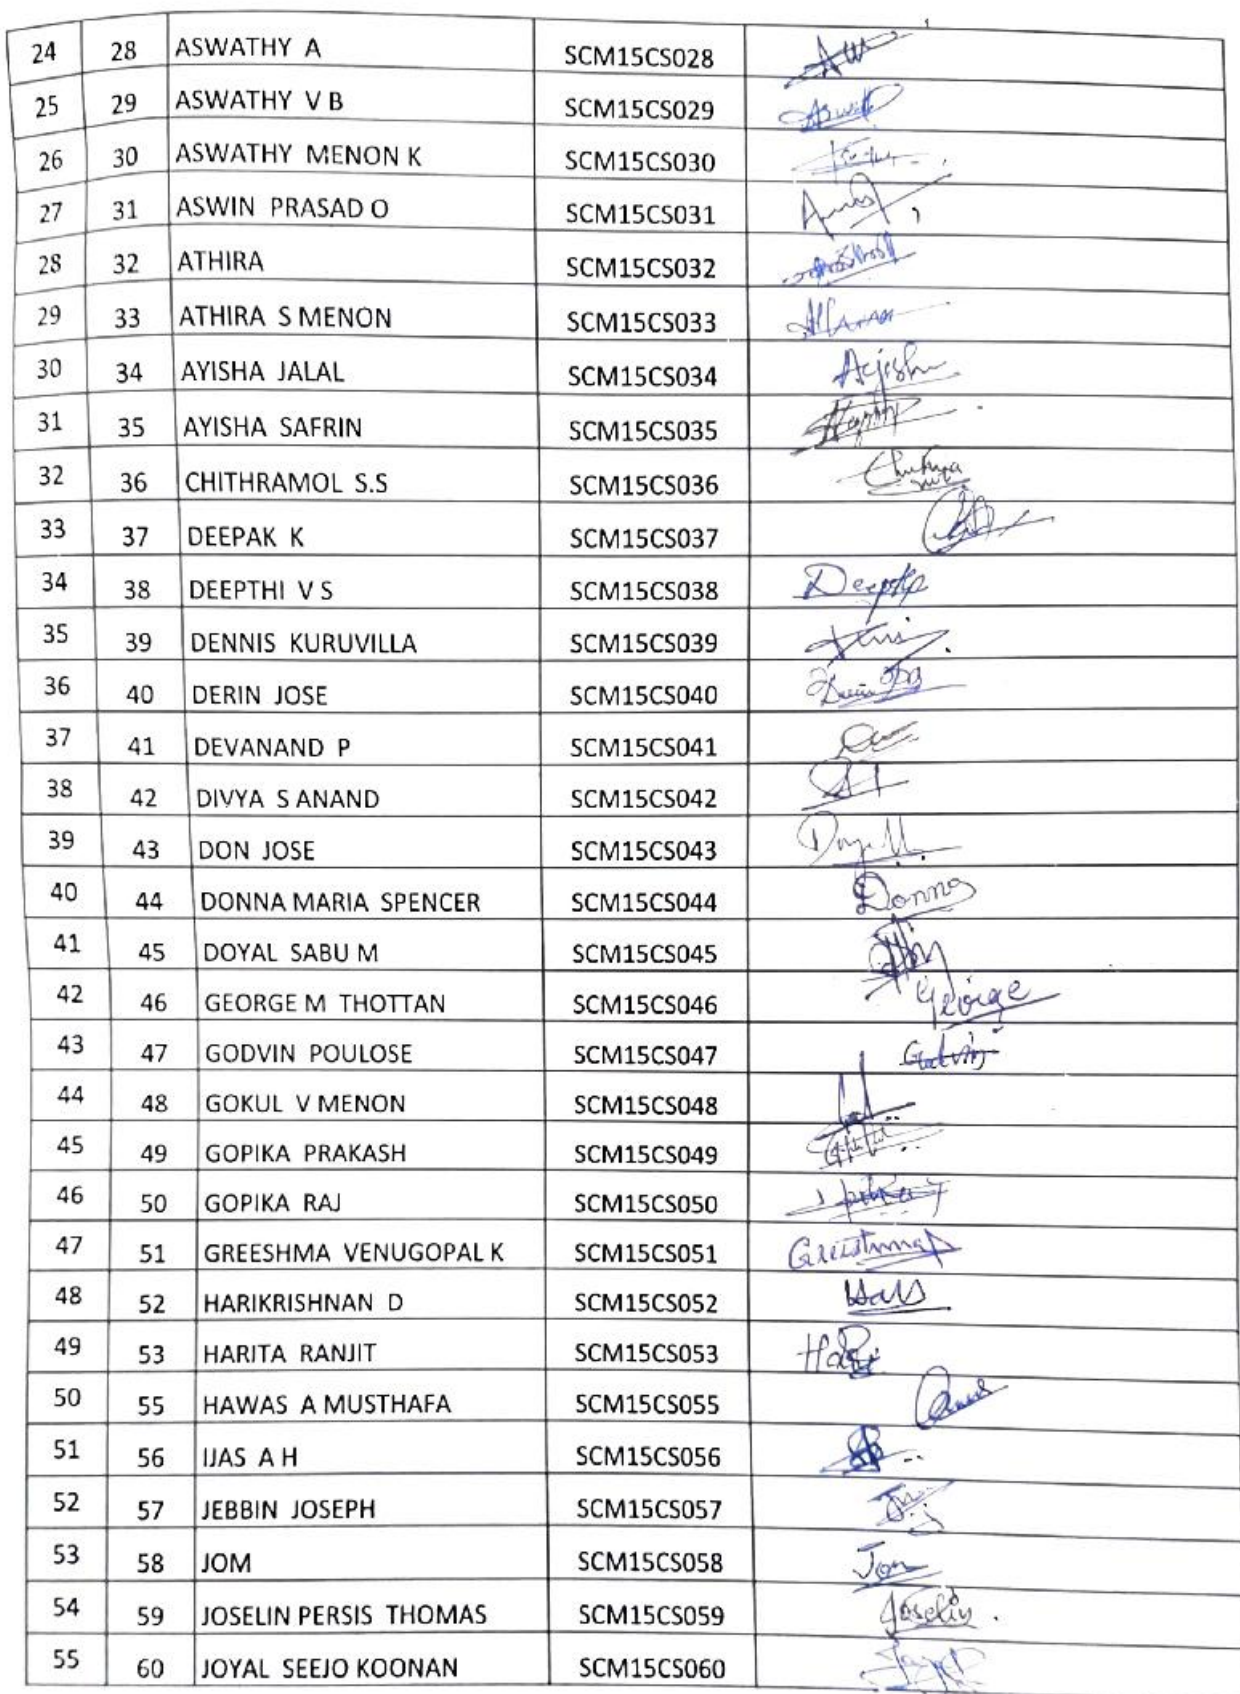 24 28 ASWATHY A SCM15CS028
25 29 ASWATHY V B SCM15CS029
26 30 ASWATHY MENON K SCM15CS030
27 31 ASWIN PRASAD O SCM15CS031
28 32 ATHIRA SCM15CS032
29 33 ATHIRA S MENON SCM15CS033
30 34 AYISHA JALAL SCM15CS034 Ayisha
31 35 AYISHA SAFRIN SCM15CS035
32 36 CHITHRAMOL S.S SCM15CS036
33 37 DEEPAK K SCM15CS037
34 38 DEEPTHI V S SCM15CS038 Deepthi
35 39 DENNIS KURUVILLA SCM15CS039
36 40 DERIN JOSE SCM15CS040
37 41 DEVANAND P SCM15CS041
38 42 DIVYA S ANAND SCM15CS042
39 43 DON JOSE SCM15CS043
40 44 DONNA MARIA SPENCER SCM15CS044 Donna
41 45 DOYAL SABU M SCM15CS045
42 46 GEORGE M THOTTAN SCM15CS046 George
43 47 GODVIN POULOSE SCM15CS047 Godvin
44 48 GOKUL V MENON SCM15CS048
45 49 GOPIKA PRAKASH SCM15CS049
46 50 GOPIKA RAJ SCM15CS050
47 51 GREESHMA VENUGOPAL K SCM15CS051 Greeshma
48 52 HARIKRISHNAN D SCM15CS052
49 53 HARITA RANJIT SCM15CS053
50 55 HAWAS A MUSTHAFA SCM15CS055
51 56 IJAS A H SCM15CS056
52 57 JEBBIN JOSEPH SCM15CS057
53 58 JOM SCM15CS058 Jom
54 59 JOSELIN PERSIS THOMAS SCM15CS059 Joselin
55 60 JOYAL SEEJO KOONAN SCM15CS060